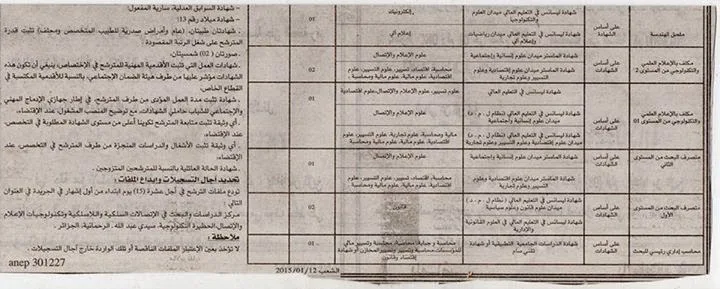 - شهادة السوابق العدلية، سارية المفعول.
- شهادة ميلاد رقم 13،
- شهادتان طبيتان، (عام وأمراض صدرية للطبيب المتخصص ومحلف) تثبت قدرة
المترشح على شغل الرتبة المقصودة.
- صورتان (02) شمسيتان.
- شهادات العمل التي تثبت الأقدمية المهنية للمترشح في الإختصاص، ينبغي أن تكون هذه
الشهادات مؤشر عليها من طرف هيئة الضمان الإجتماعي، بالنسبة للأقدمية المكتسبة في
القطاع الخاص.
- شهادة تثبت مدة العمل المؤدى من طرف المترشح، في إطار جهازي الإدماج المهني
والإجتماعي للشباب حاملي الشهادات، مع توضيح المنصب المشغول، عند الإقتضاء.
- أي وثيقة تثبت متابعة المترشح تكوينا أعلى من مستوى الشهادة المطلوبة في التخصص،
عند الإقتضاء.
- أي وثيقة تثبت الأشغال والدراسات المنجزة من طرف المترشح في التخصص، عند
الإقتضاء.
- شهادة الحالة العائلية بالنسبة للمترشحين المتزوجين.
تحديد آجال التسجيلات وإيداع الملفات:
تودع ملفات الترشح في أجل عشرة (15) يوم ابتداء من أول إشهار في الجريدة في العنوان
التالي:
مركز الدراسات والبحث في الإتصالات السلكية واللاسلكية وتكنولوجيات الإعلام
والإتصال، الحظيرة التكنولوجية، سيدي عبد الله، الرحمانية، الجزائر.
ملاحظة:
لا تؤخذ بعين الإعتبار الملفات الناقصة أو تلك الواردة خارج آجال التسجيلات.
anep 301227
ملحق الهندسة
على أساس
الشهادة
شهادة ليسانس في التعليم العالي ميدان العلوم
والتكنولوجيا
إلكترونيك
01
شهادة ليسانس في التعليم العالي ميدان رياضيات
وإعلام آلي
إعلام آلي
مكلف بالإعلام العلمي
والتكنولوجي من المستوى 2
على أساس
الشهادات
شهادة الماستر ميدان علوم إنسانية وإجتماعية
علوم الإعلام والإتصال
02
شهادة الماستر ميدان علوم إقتصادية وعلوم
التسيير وعلوم تجارية
محاسبة، اقتصاد، تسيير، علوم تجارية، علوم
إقتصادية، علوم مالية، مالية ومحاسبة
مكلف بالإعلام العلمي
والتكنولوجي من المستوى 01
على أساس
الشهادات
شهادة ليسانس في التعليم العالي
علوم تسيير، علوم الإعلام والإتصال، علوم اقتصادية
01
شهادة ليسانس في التعليم العالي (نظام ل. م. د)
ميدان علوم إنسانية وإجتماعية
علوم الإعلام والإتصال
شهادة ليسانس في التعليم العالي (نظام ل. م. د)
مالية ومحاسبة، علوم تجارية، علوم التسيير، علوم
متصرف البحث من المستوى
الثاني
على أساس
الشهادات
شهادة الماستر ميدان علوم إنسانية وإجتماعية
علوم الإعلام والإتصال
01
شهادة الماستر ميدان علوم إقتصادية وعلوم
التسيير وعلوم تجارية
متصرف البحث من المستوى
الأول
على أساس
الشهادات
شهادة ليسانس في التعليم العالي (نظام ل. م. د)
ميدان علوم قانون وعلوم سياسية
قانون
02
شهادة ليسانس في التعليم العالي في العلوم القانونية
والإدارية
محاسب إداري رئيسي للبحث
على أساس
الشهادات
شهادة الدراسات الجامعية التطبيقية أو شهادة
تقني سام
01
الشعب 2015/01/12